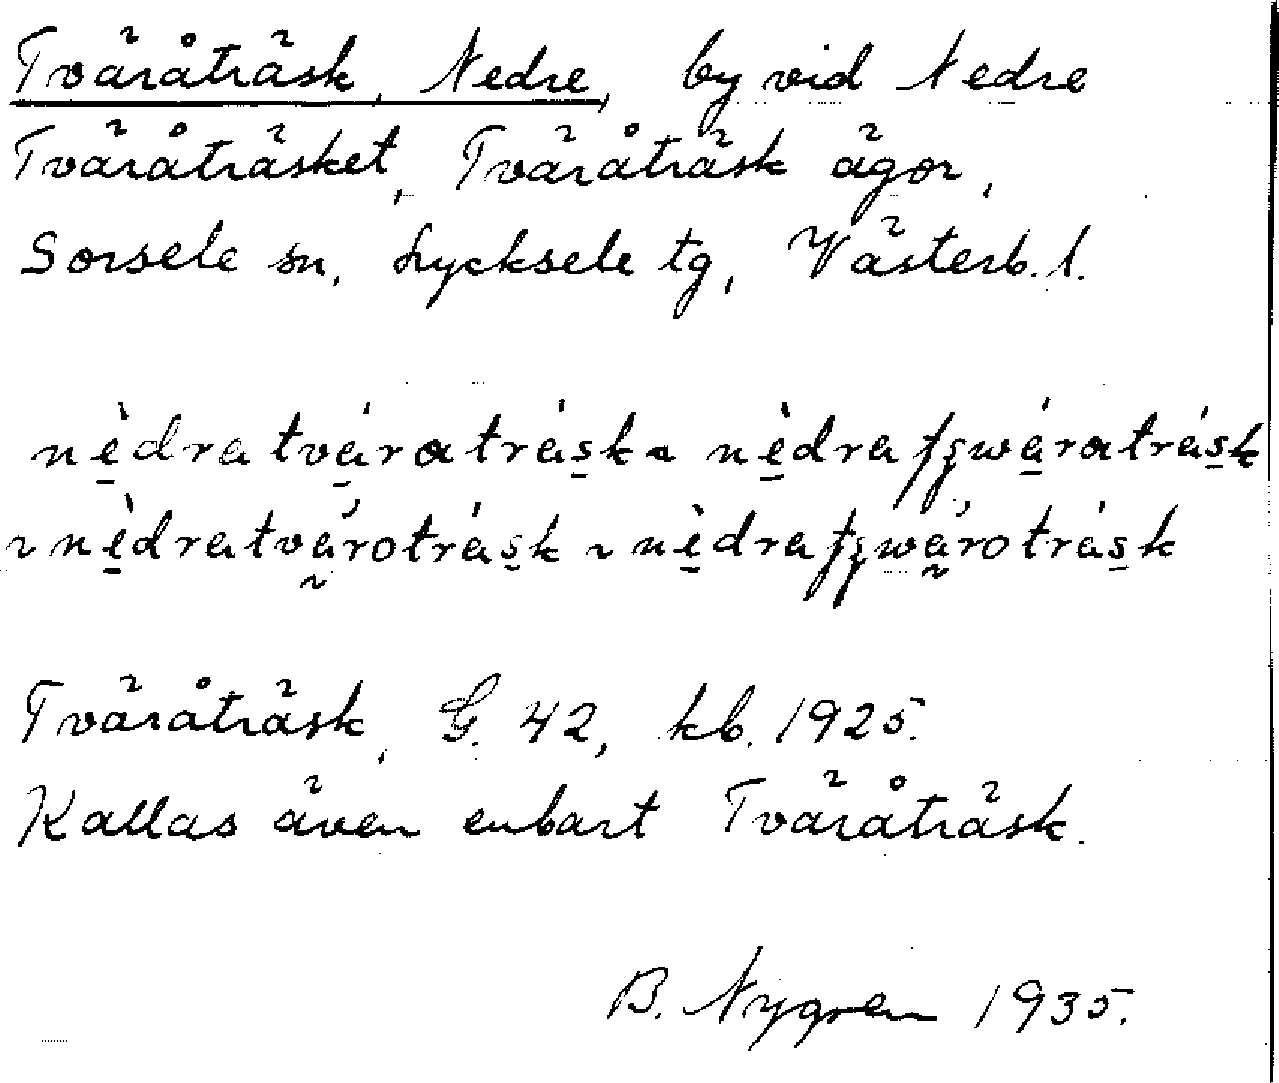 Tväråträsk, Nedre, by vid Nedre
Tväråträsket, Tväråträsk ägor,
Sorsele sn, Lycksele tg, Västerb. l.
nèdratváratrásk ~ nèdra
~ nèdratvárotrásk ~ nèdra
Tväråträsk, G. 42, kb. 1925.
Kallas även enbart Tväråträsk.
B. Nygren 1935.